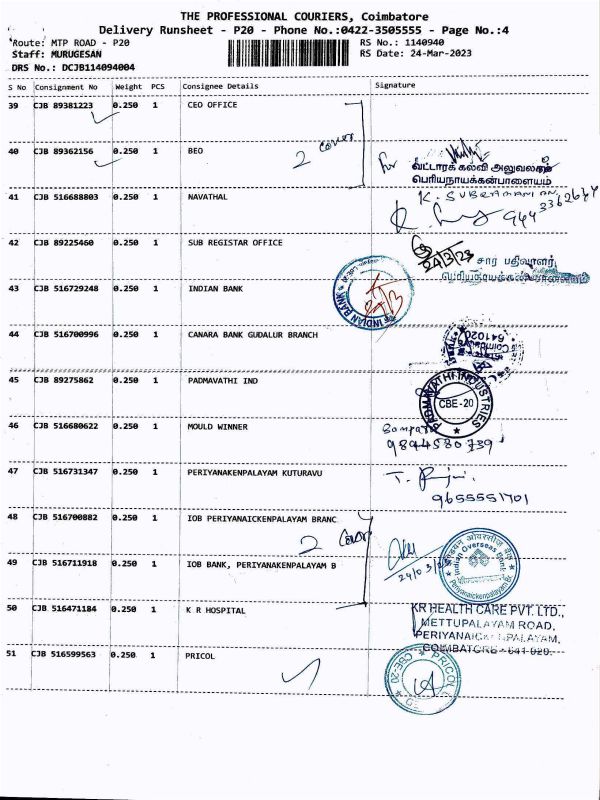 THE PROFESSIONAL COURIERS, Coimbatore
Delivery Runsheet - P20 - Phone No.:0422-3505555 - Page No.:4
Route: MTP ROAD - P20
RS No.: 1140940
Staff: MURUGESAN
RS Date: 24-Mar-2023
DRS No.: DCJB114094004
S No Consignment No Weight PCS Consignee Details Signature
39 CJB 89381223 0.250 1 CEO OFFICE
2 cover
40 CJB 89362156 0.250 1 BEO
வட்டாரக் கல்வி அலுவலகம்
பெரியநாயக்கன்பாளையம்
41 CJB 516688803 0.250 1 NAVATHAL
K. SUBRAMANIAN
42 CJB 89225460 0.250 1 SUB REGISTAR OFFICE
24/3/23
சார் பதிவாளர்,
பெரியநாயக்கன்பாளையம்
43 CJB 516729248 0.250 1 INDIAN BANK
INDIAN BANK
44 CJB 516700996 0.250 1 CANARA BANK GUDALUR BRANCH
641020
45 CJB 89275862 0.250 1 PADMAVATHI IND
PADMAVATHI INDUSTRIES
CBE-20
46 CJB 516680622 0.250 1 MOULD WINNER
9894580739
47 CJB 516731347 0.250 1 PERIYANAKENPALAYAM KUTURAVU
9655551701
48 CJB 516700882 0.250 1 IOB PERIYANAICKENPALAYAM BRANC
2 cover
49 CJB 516711918 0.250 1 IOB BANK, PERIYANAKENPALAYAM B
24/03/23
Indian Overseas Bank
Periyanaickenpalayam Br.
50 CJB 516471184 0.250 1 K R HOSPITAL
KR HEALTH CARE PVT. LTD.,
METTUPALAYAM ROAD,
PERIYANAICKENPALAYAM,
COIMBATORE - 641 020.
51 CJB 516599563 0.250 1 PRICOL
PRICOL
CBE-20